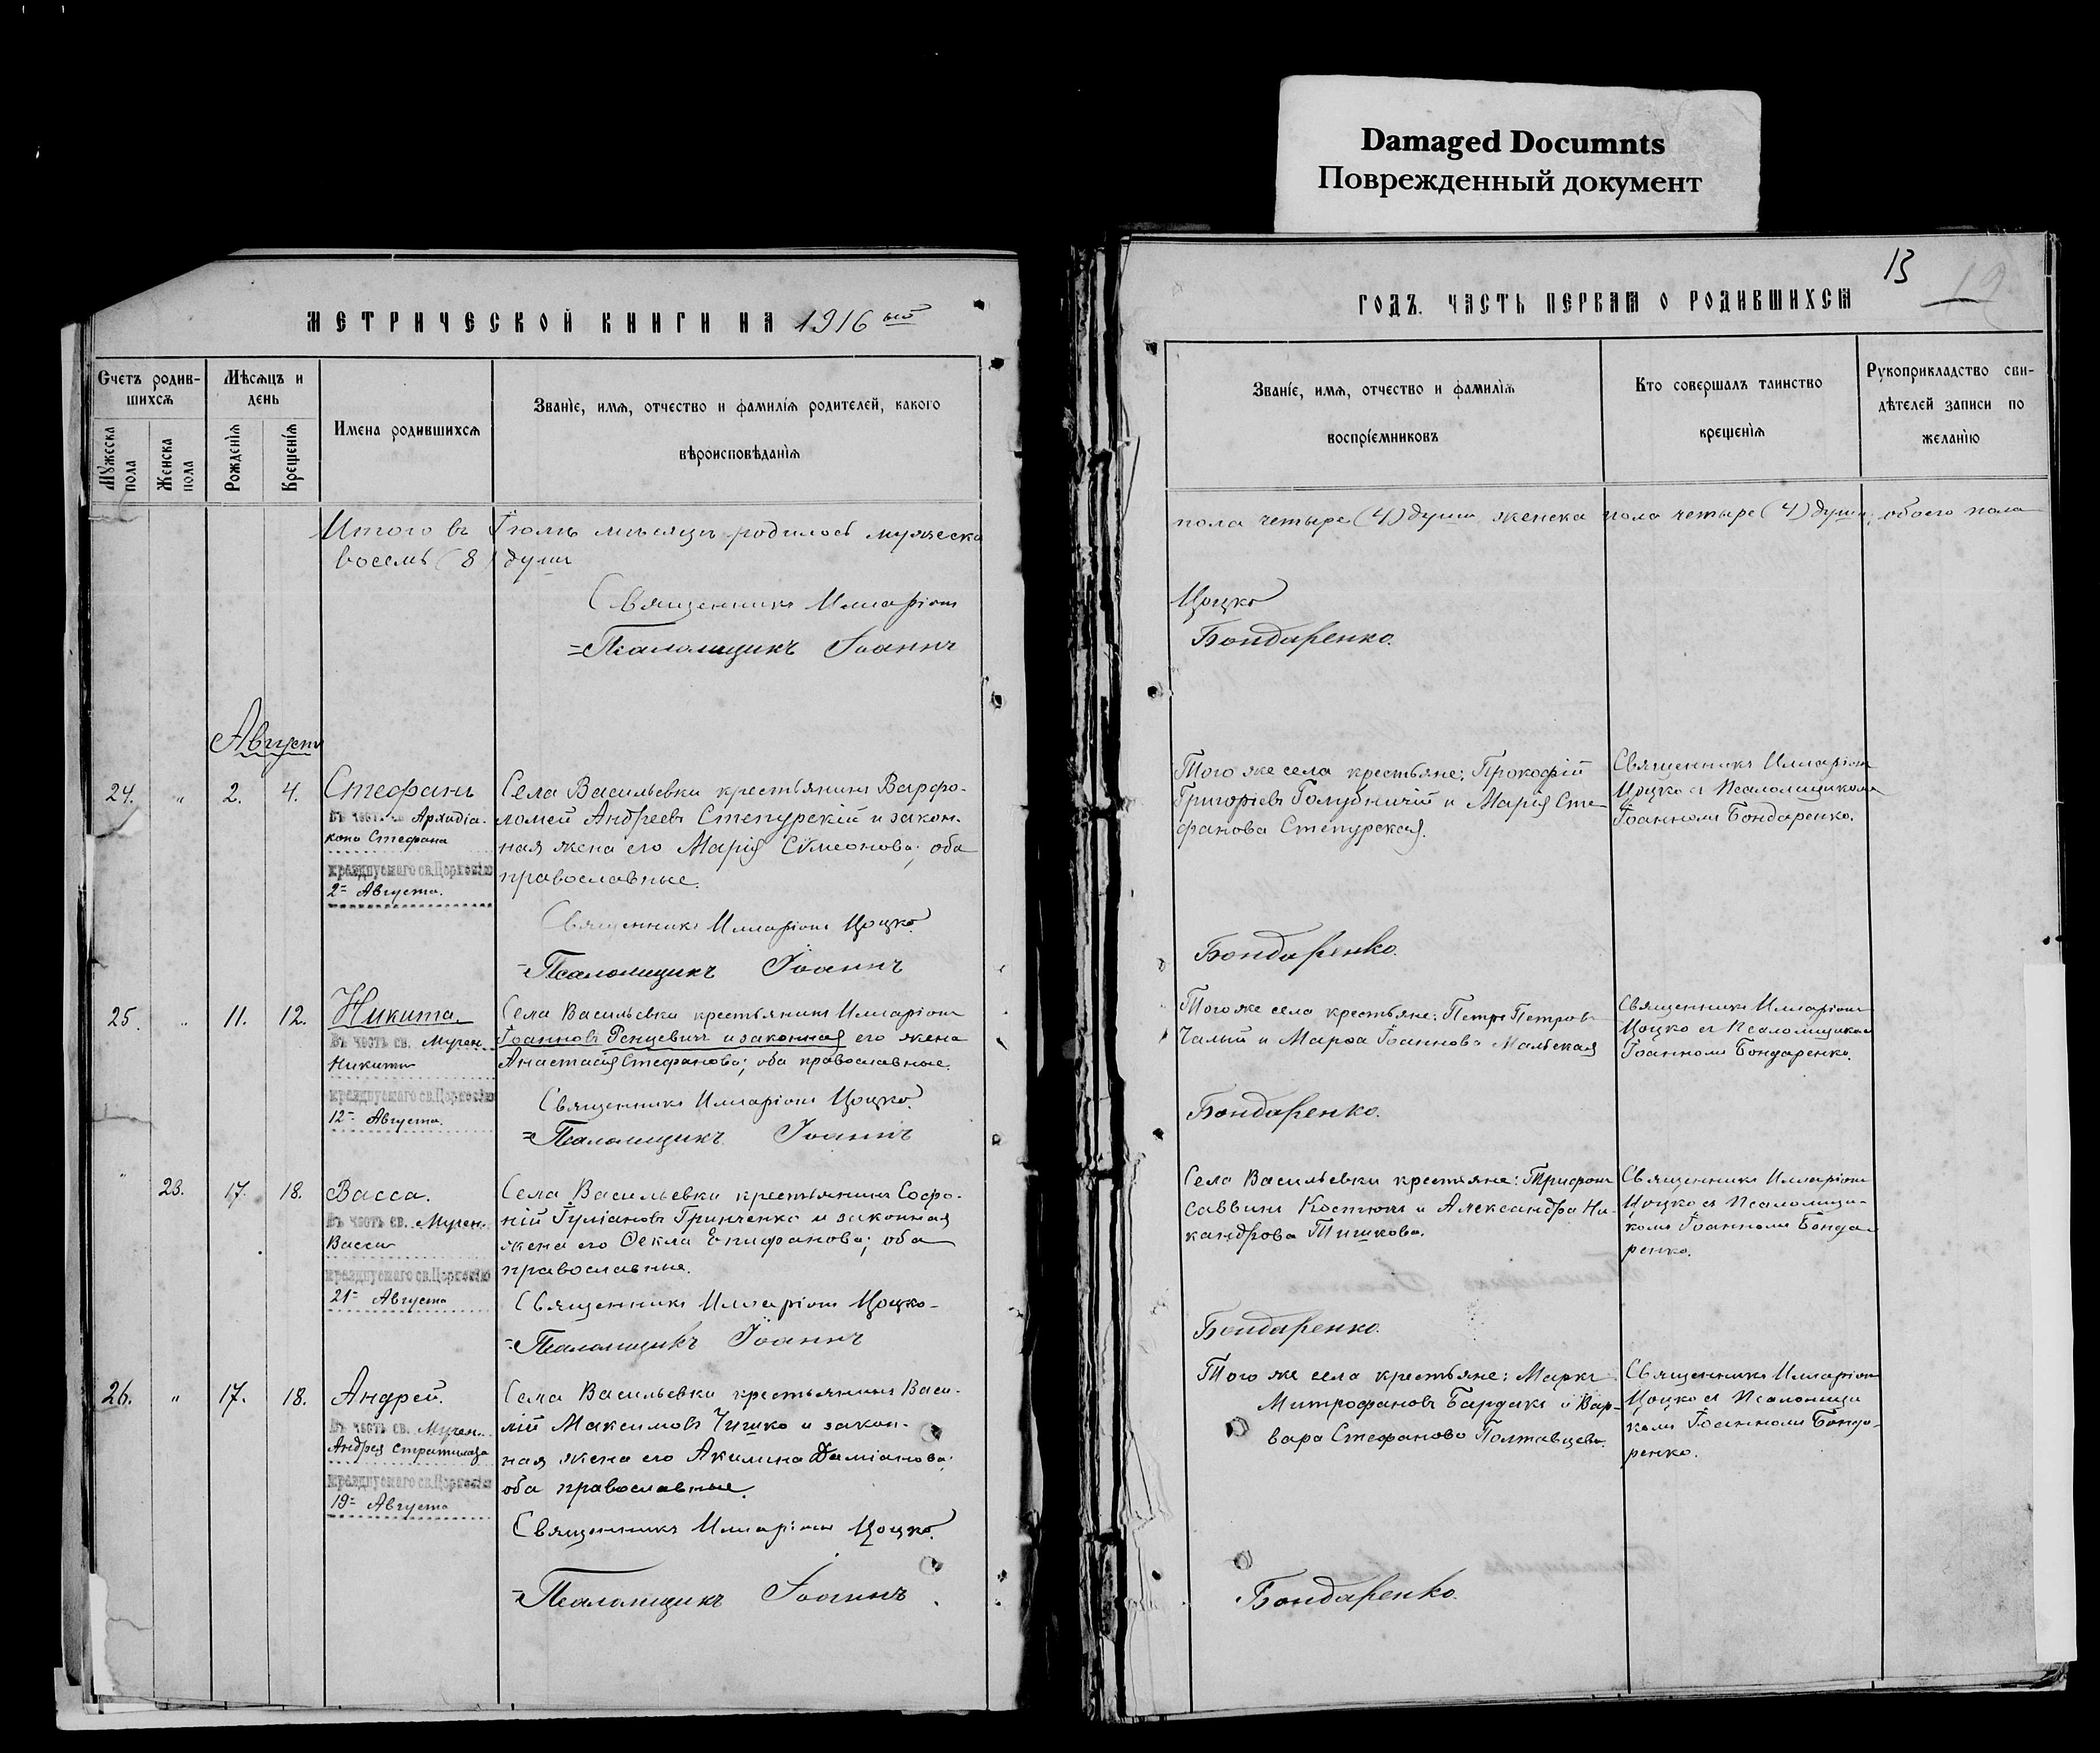 Damaged Documnts
Поврежденный документ
МЕТРИЧЕСКОЙ КНИГИ НА 1916 ый
Счетъ родив-
шихся
Мѣсяцъ и
день
Имена родившихся
Званіе, имя, отчество и фамилія родителей, какого
вѣроисповѣданія
Мужеска
пола
Женска
пола
Рожденія
Крещенія
Итого въ Іюлѣ мѣсяцѣ родилось мужеска
восемь (8) душъ
Священникъ Илларіонъ
Псаломщикъ Іоаннъ
Августъ
24. " 2. 4. Стефанъ
въ честь Архидіа-
кона Стефана
празднуемаго св. Церковію
2- Августа.
Села Васильевки крестьянинъ Варфо-
ломей Андреевъ Степурскій и закон-
ная жена его Марія Сѵмеонова; оба
православные.
Священникъ Илларіонъ Цоцко.
Псаломщикъ Іоаннъ
25. " 11. 12. Никита.
въ честь св. Мучен.
Никиты
празднуемаго св. Церковію
12- Августа.
Села Васильевки крестьянинъ Илларіонъ
Іоанновъ Ренцевичъ и законная его жена
Анастасія Стефанова; оба православные.
Священникъ Илларіонъ Цоцко.
Псаломщикъ Іоаннъ
" 23. 17. 18. Васса.
въ честь св. Мучен.
Вассы
празднуемаго св. Церковію
21- Августа
Села Васильевки крестьянинъ Софо-
ній Іуліановъ Гринченко и законная
жена его Ѳекла Епифанова; оба
православные.
Священникъ Илларіонъ Цоцко
Псаломщикъ Іоаннъ
26. " 17. 18. Андрей.
въ честь св. Мучен.
Андрея Стратилата
празднуемаго св. Церковію
19- Августа
Села Васильевки крестьянинъ Васи-
лій Максимовъ Чишко и закон-
ная жена его Акилина Даміанова;
оба православные.
Священникъ Илларіонъ Цоцко.
Псаломщикъ Іоаннъ
13
ГОДЪ. ЧАСТЬ ПЕРВАЯ О РОДИВШИХСЯ
Званіе, имя, отчество и фамилія
воспріемниковъ
Кто совершалъ таинство
крещенія
Рукоприкладство сви-
дѣтелей записи по
желанію
пола четыре (4) души женска пола четыре (4) души; обоего пола
Цоцко
Бондаренко.
Того же села крестьяне: Прокофій
Григоріевъ Голубничій и Марія Сте-
фанова Степурская.
Священникъ Илларіонъ
Цоцко съ Псаломщикомъ
Іоанномъ Бондаренко.
Бондаренко.
Того же села крестьяне: Петръ Петровъ
Чалый и Марѳа Іоаннова Мальская
Священникъ Илларіонъ
Цоцко съ Псаломщикомъ
Іоанномъ Бондаренко.
Бондаренко.
Села Васильевки крестьяне: Трифонъ
Саввинъ Костюкъ и Александра Ни-
кандрова Тишкова.
Священникъ Илларіонъ
Цоцко съ Псаломщи-
комъ Іоанномъ Бонда-
ренко.
Бондаренко.
Того же села крестьяне: Маркъ
Митрофановъ Бардакъ и Вар-
вара Стефанова Полтавцева.
Священникъ Илларіонъ
Цоцко съ Псаломщи
комъ Іоанномъ Бонда-
ренко.
Бондаренко.